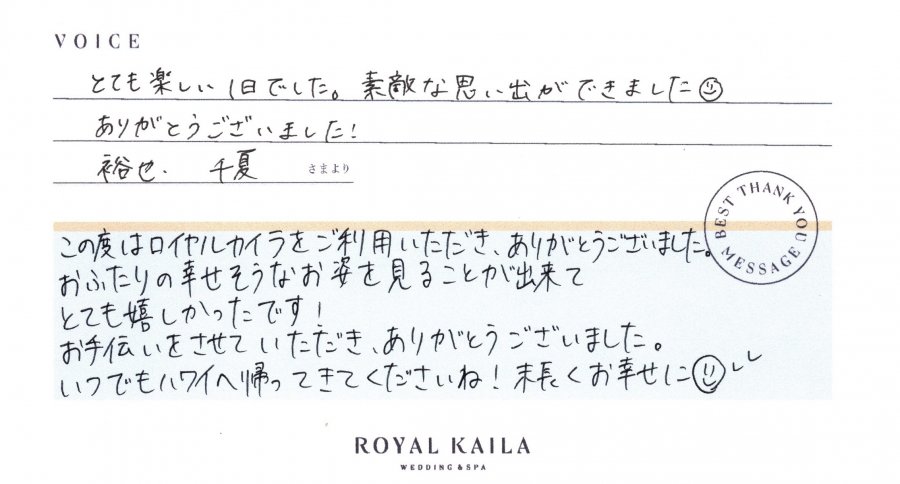 VOICE
とても楽しい1日でした。素敵な思い出ができました
ありがとうございました!
裕也. 千夏 さまより
BEST THANK YOU MESSAGE
この度はロイヤルカイラをご利用いただき、ありがとうございました。
おふたりの幸せそうなお姿を見ることが出来て
とても嬉しかったです!
お手伝いをさせていただき、ありがとうございました。
いつでもハワイへ帰ってきてくださいね!末長くお幸せに
ROYAL KAILA
WEDDING & SPA